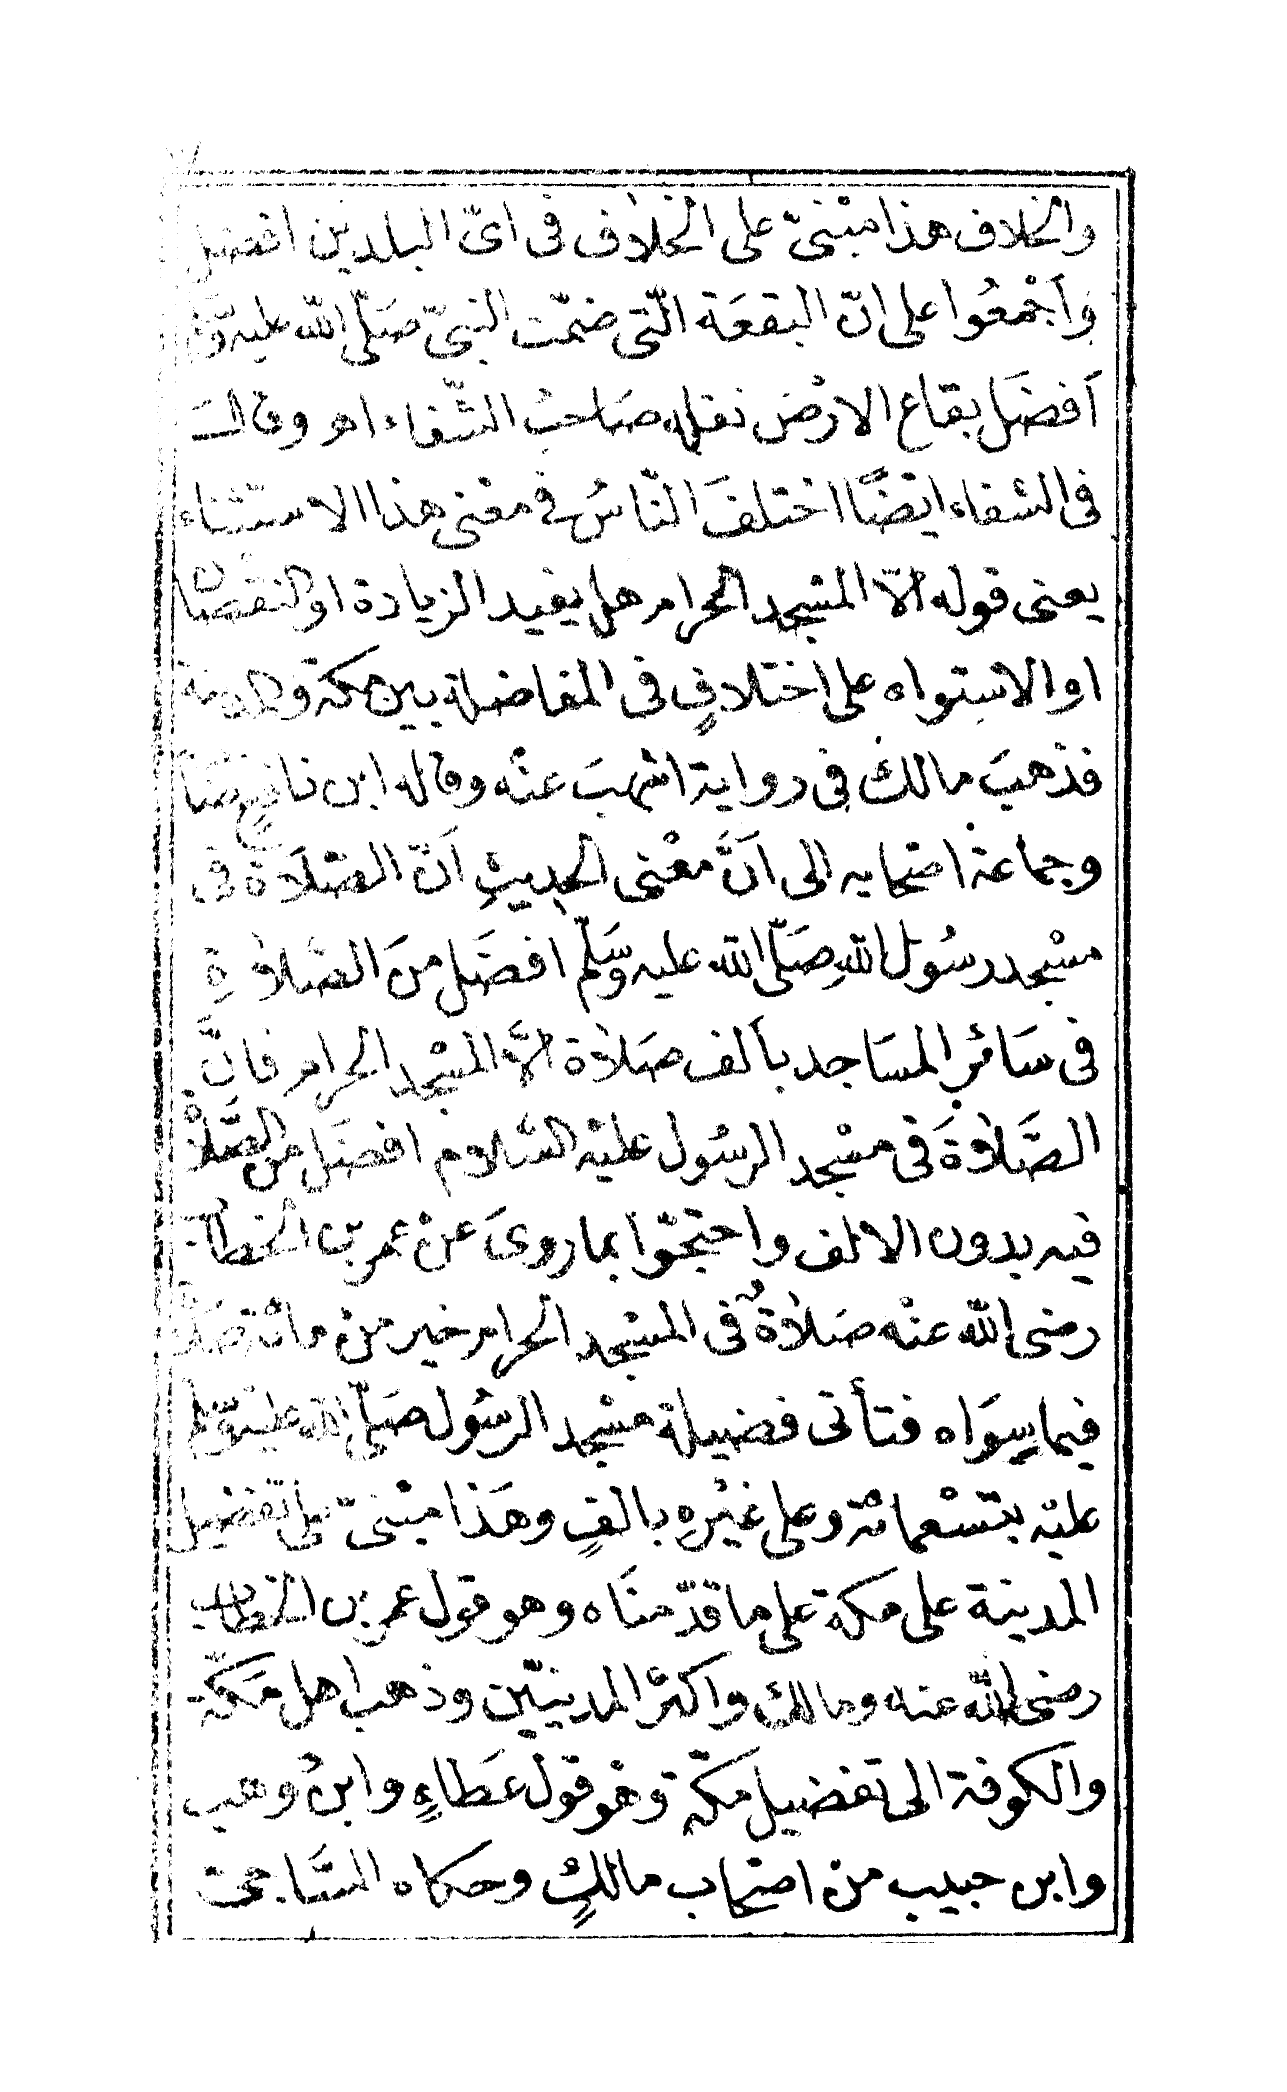 والخلاف هذا مبنىّ على الخلاف فى اىّ البلدين افضل
وَاَجْمعُوا على انّ البقعَة الّتى ضمّت النبىّ صَلّى الله عليه وسلّم
اَفضَل بقاع الارْض نقله صَاحبُ الشّفاء اهـ وقالَ
فى الشفاء ايضًا اختلفَ النّاسُ فى مغنى هذا الاستثناء
يعنى قوله الّا المسْجد الحرام هل يفيد الزيادة او النقصان
او الاستواء على اختلافٍ فى المفاضلة بين مكة والمدينة
فذهبَ مالكٌ فى رواية اشهبَ عنْه وقاله ابن نافع صَاحبه
وجماعة اصْحابه الى اَنَّ معْنى الحديثِ اَنّ الصّلَاة فى
مسْجد رسُول اللهِ صَلّى الله عليه وسَلّم افضَل منَ الصَّلاةِ
فى سَائرِ المسَاجد باَلف صَلاة الاَّ المسْجد الحرام فانَّ
الصَّلاةَ فى مسْجد الرسُول عليْه السّلام افضَل من الصَّلاة
فيه بدون الالف واحتجّوا بما روىَ عنْ عمر بن الخطاب
رضى الله عنْه صَلاةٌ فى المسْجد الحرام خير منْ مائة صَلاة
فيما سِوَاه فتأتى فضيلة مسْجد الرسُول صَلّى الله عليه وسلم
عليْه بتسْعمائة وعلى غيْرهِ بالفٍ وهَذا مبْنىّ على تفضيل
المدينة على مكة على ما قدّمنَاه وهو قول عمر بن الخطاب
رضى الله عنه ومالك واكثر المدنييّن وذهب اهل مَكّة
والكوفة الى تفضيل مَكّة وهُو قول عَطاءٍ وابنُ وهب
وابن حبيب منْ اصْحاب مالكٍ وحكاه السَّاجى